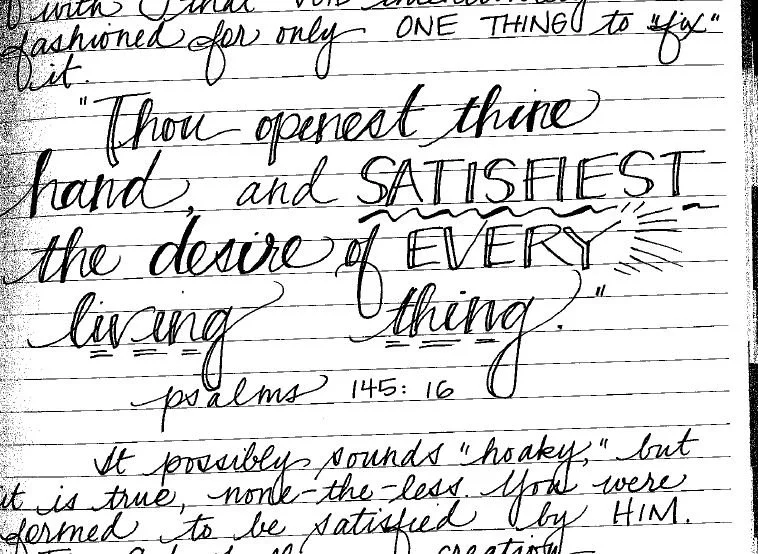 with that
fashioned for only ONE THING to "fix"
it.
"Thou openest thine
hand, and SATISFIEST
the desire of EVERY
living thing."
psalms 145: 16
It possibly sounds "hoaky," but
it is true, none-the-less. You were
formed to be satisfied by HIM.
creation